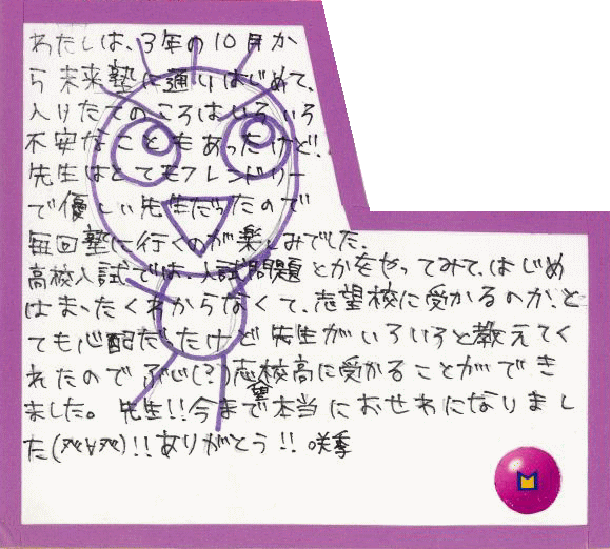 わたしは、3年の10月か
ら未来塾に通いはじめて、
入りたてのころはいろいろ
不安なこともあったけど!、
先生はとてもフレンドリー
で優しい先生だったので
毎回塾に行くのが楽しみでした。
高校入試では、入試問題とかをやってみて、はじめ
はまったくわからなくて、志望校に受かるのか!と
ても心配だったけど先生がいろいろと教えてく
れたのでぶじ(!?)志望校高に受かることができ
ました。先生!!今まで本当におせわになりまし
た(^∀^)!!ありがとう!!咲季